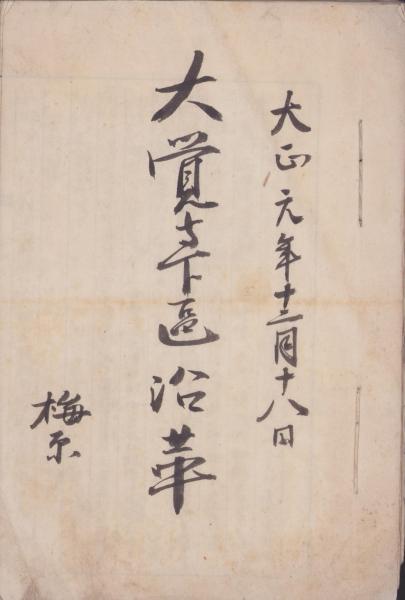 大正元年十二月十八日
大覚寺下區沿革
梅原